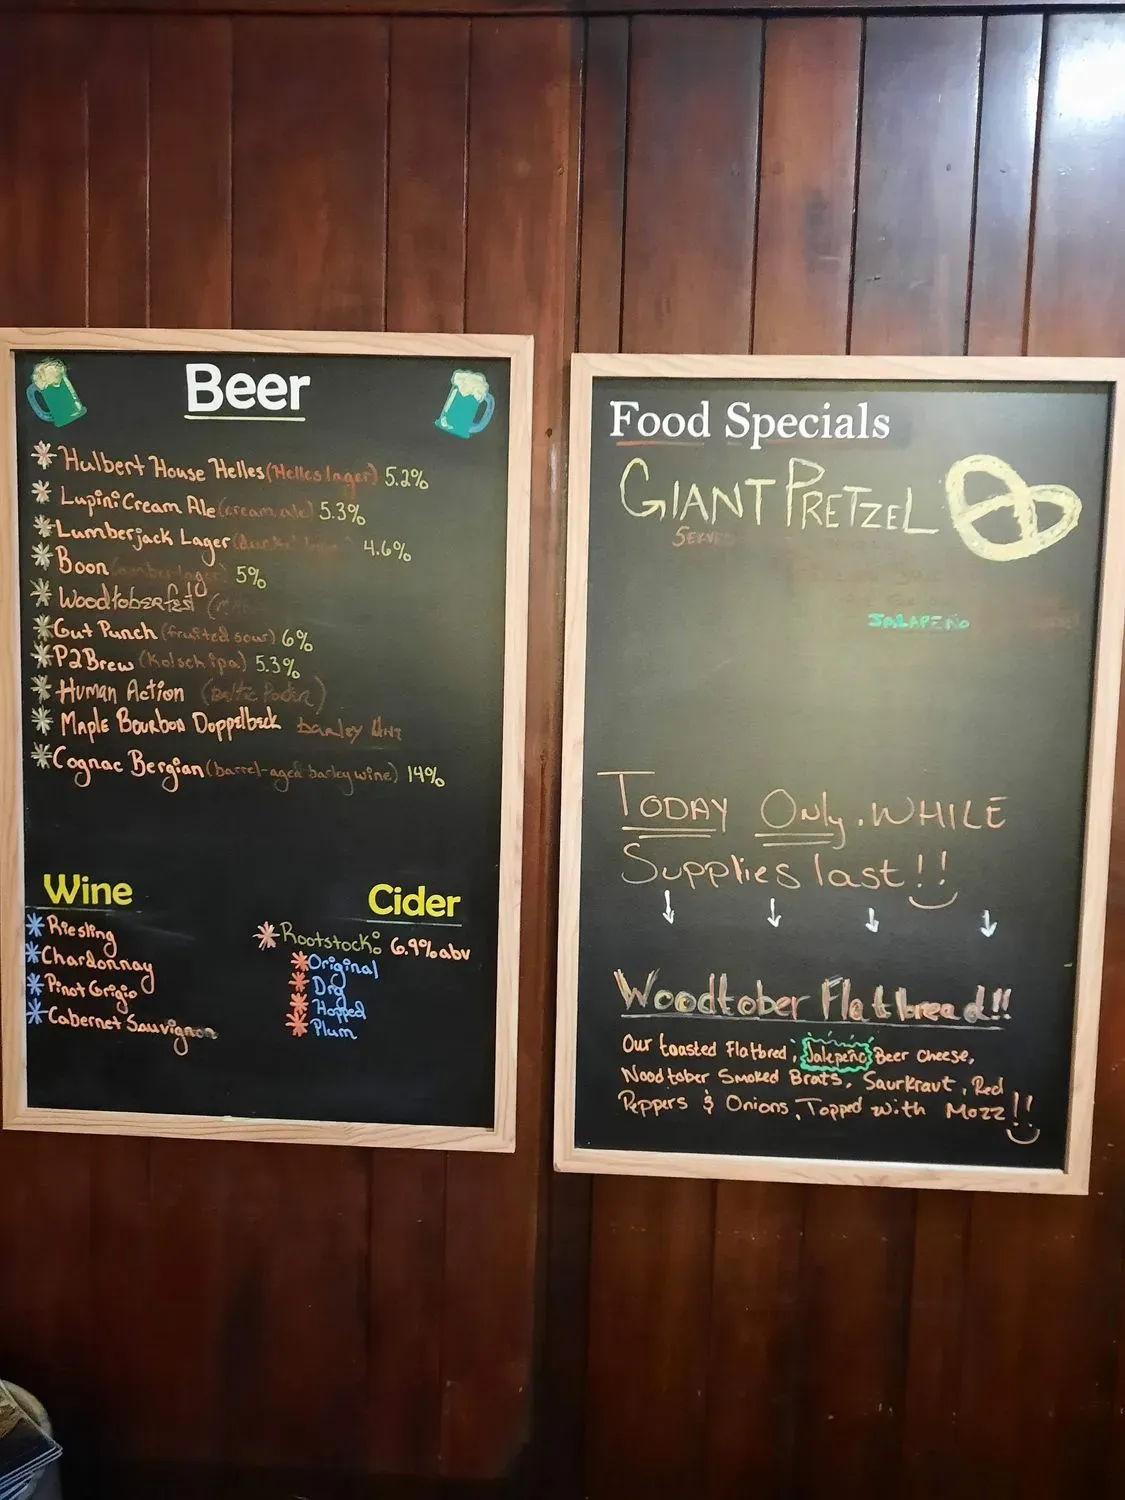 Beer
Hulbert House Helles (Helles lager) 5.2%
Lupini Cream Ale (cream ale) 5.3%
Lumberjack Lager 4.6%
Boon (amber lager) 5%
Woodtoberfest
Gut Punch (fruited sour) 6%
P2Brew (Kolsch ipa) 5.3%
Human Action
Maple Bourbon Doppelbock barley
Cognac Bergian (barrel-aged barley wine) 14%
Wine
Riesling
Chardonnay
Pinot Grigio
Cabernet Sauvignon
Cider
Rootstock: 6.9% abv
Original
Dry
Hopped
Plum
Food Specials
GIANT PRETZEL
SERVED
JALAPEÑO
TODAY Only. WHILE
Supplies last!!
Woodtober Flatbread!!
Our toasted Flatbred, Jalepeño Beer Cheese,
Woodtober Smoked Brats, Saurkraut, Red
Peppers & Onions, Topped with Mozz!!